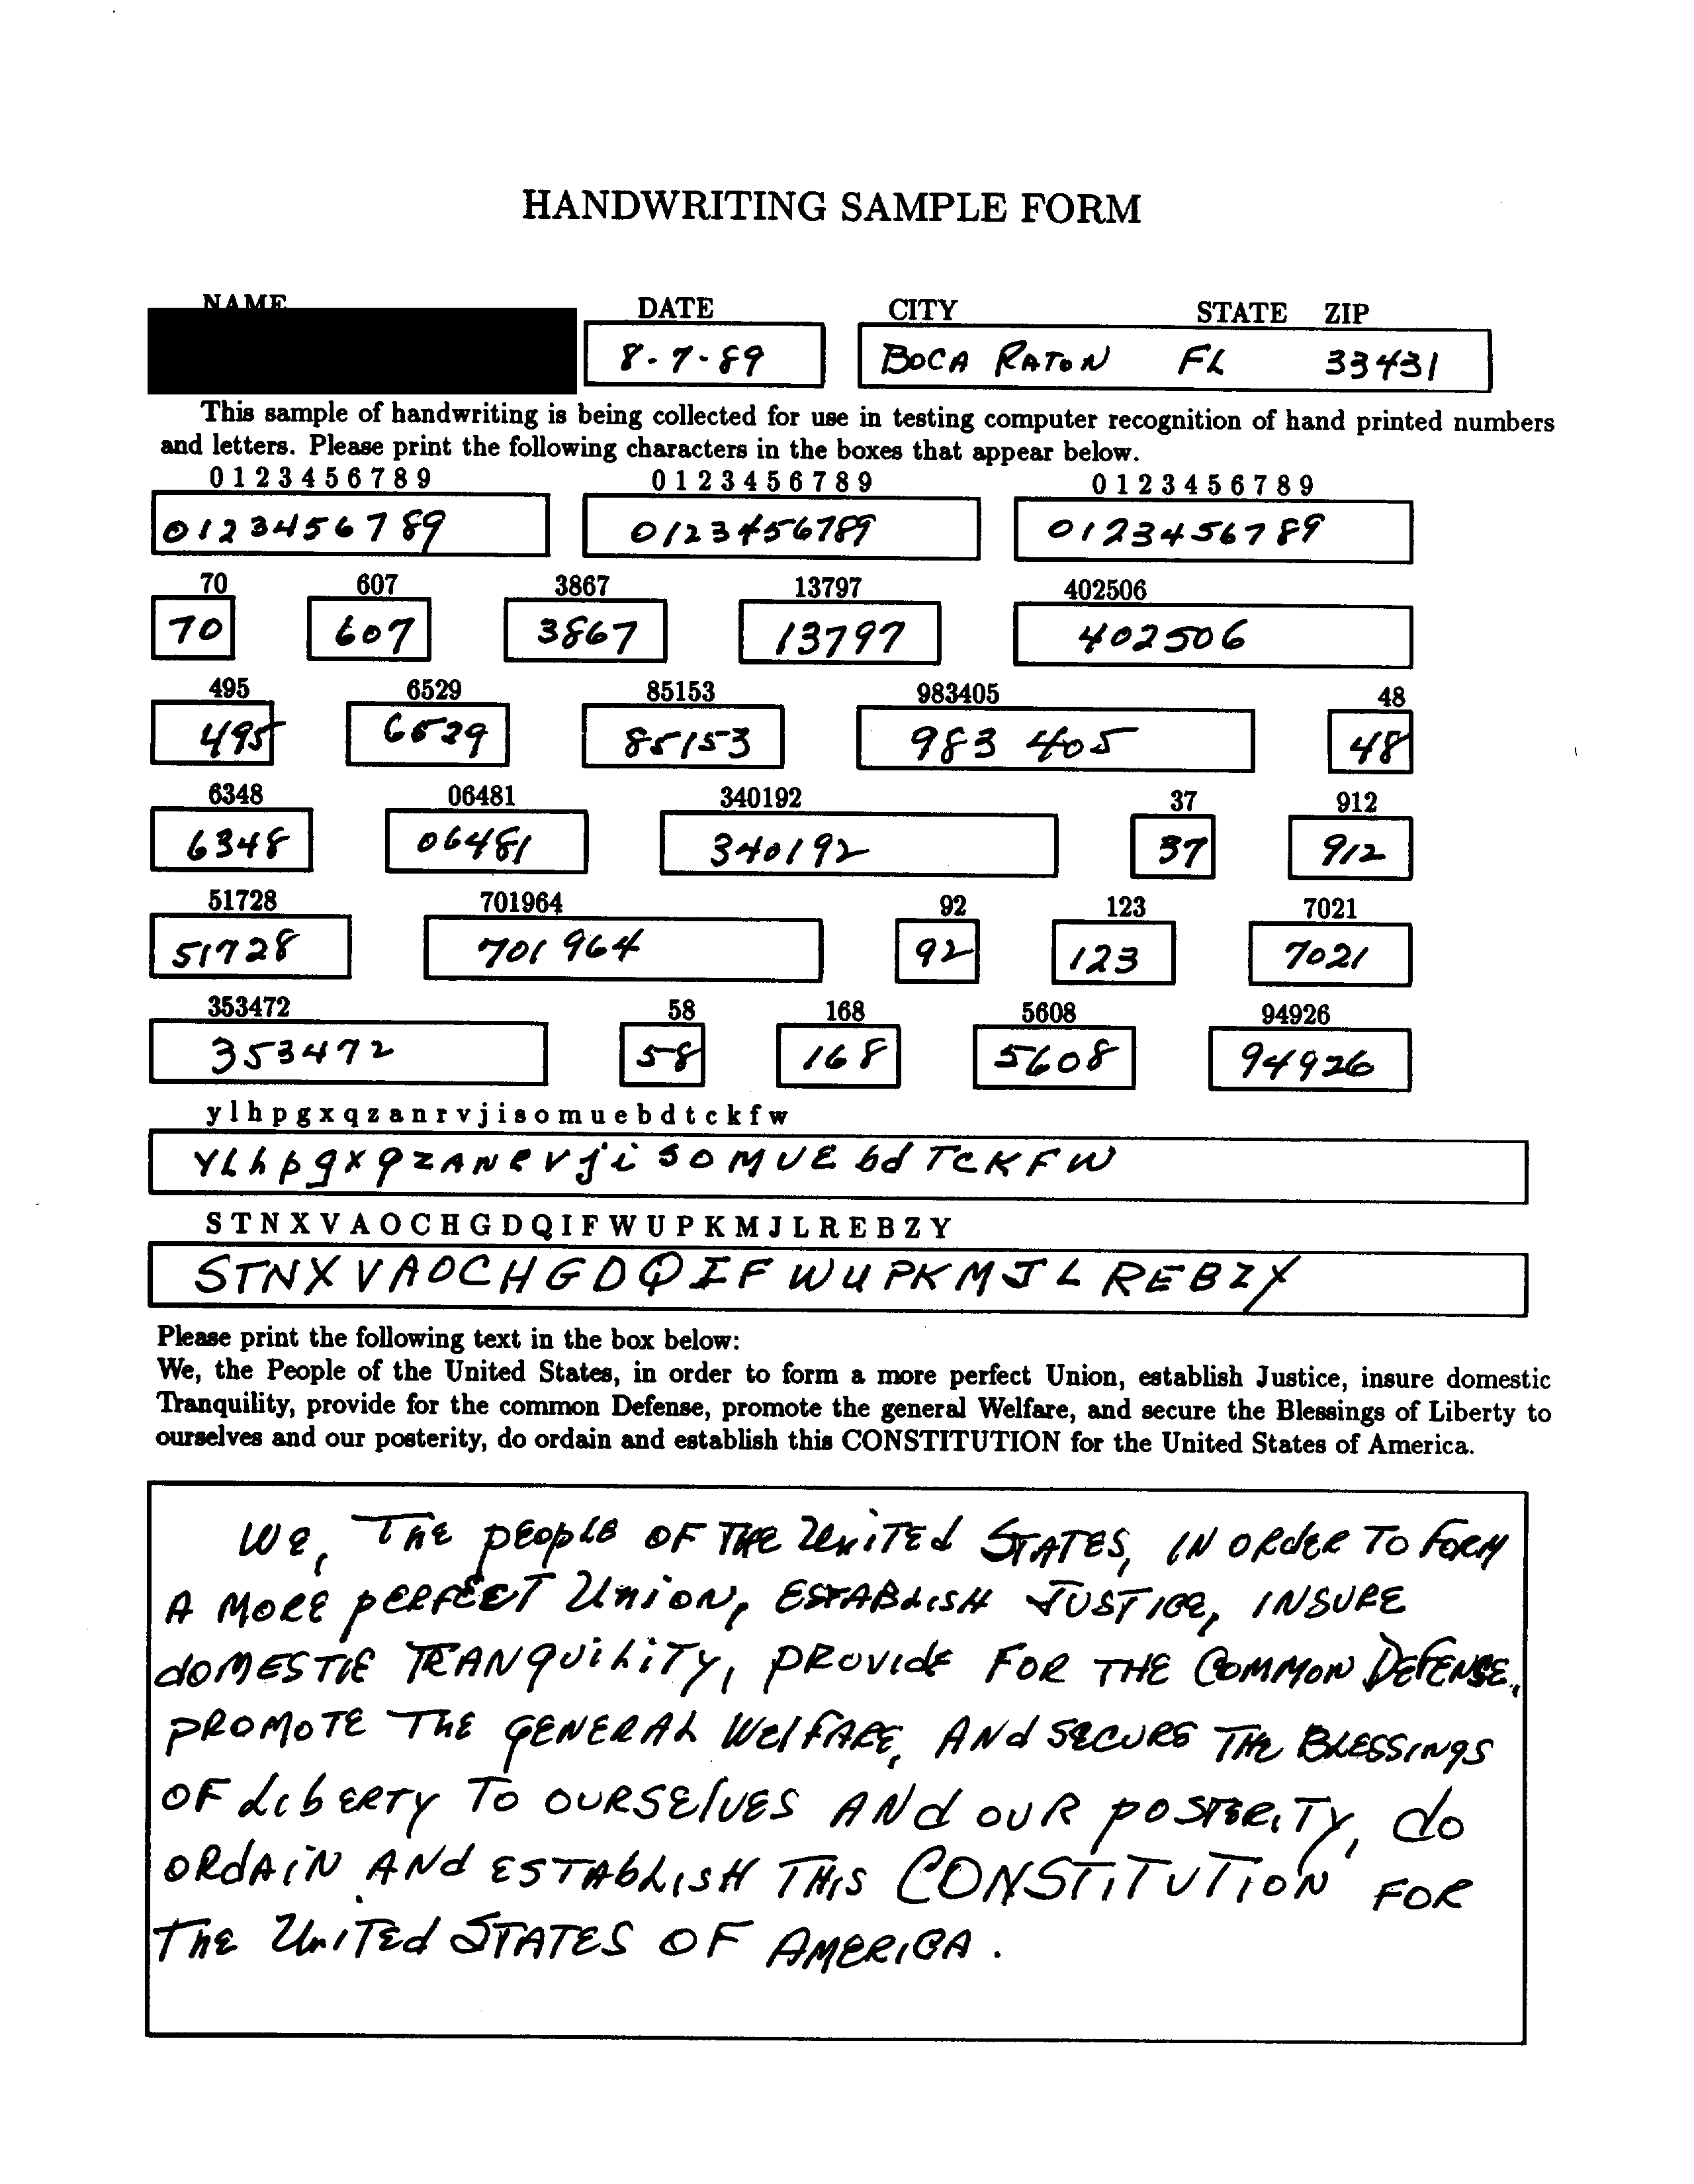 HANDWRITING SAMPLE FORM
NAME DATE CITY STATE ZIP
8-7-89 BOCA RATON FL 33431
This sample of handwriting is being collected for use in testing computer recognition of hand printed numbers
and letters. Please print the following characters in the boxes that appear below.
0 1 2 3 4 5 6 7 8 9 0 1 2 3 4 5 6 7 8 9 0 1 2 3 4 5 6 7 8 9
0123456789 0123456789 0123456789
70 607 3867 13797 402506
70 607 3867 13797 402506
495 6529 85153 983405 48
495 6529 85153 983 405 48
6348 06481 340192 37 912
6348 06481 340192 37 912
51728 701964 92 123 7021
51728 701 964 92 123 7021
353472 58 168 5608 94926
353472 58 168 5608 94926
y l h p g x q z a n r v j i s o m u e b d t c k f w
YLhpgxqzANRVjiSOMUEbdTCKFW
S T N X V A O C H G D Q I F W U P K M J L R E B Z Y
STNXVAOCHGDQIFWUPKMJLREBZY
Please print the following text in the box below:
We, the People of the United States, in order to form a more perfect Union, establish Justice, insure domestic
Tranquility, provide for the common Defense, promote the general Welfare, and secure the Blessings of Liberty to
ourselves and our posterity, do ordain and establish this CONSTITUTION for the United States of America.
WE, ThE pEOpLE OF THE UniTEd STATES, IN ORdER TO FORM
A MORE pERFECT UniON, ESTABLiSH JUSTICE, INSURE
dOMESTIC TRANqUiLiTY, PROVIdE FOR THE COMMON DEFENSE,
PROMOTE ThE GENERAL WElFARE, ANd SECURE ThE BLESSINgS
OF LibERTY TO OURSElVES ANd OUR pOSTERiTY, do
ORdAiN ANd ESTAbLiSH THiS CONSTiTUTiON FOR
ThE UniTEd STATES OF AMERiCA.